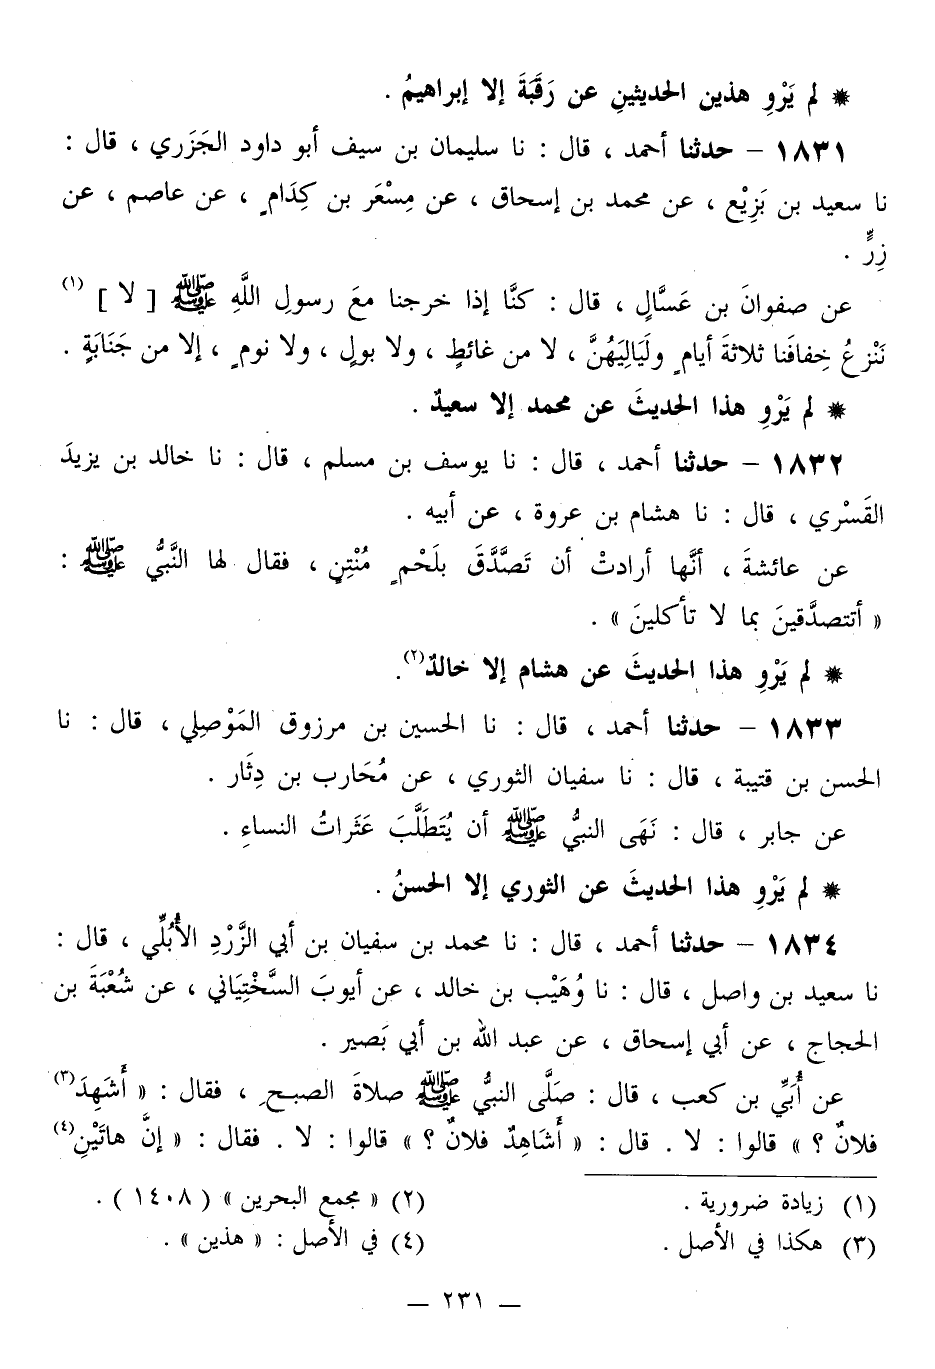 * لم يَرْوِ هذين الحديثينِ عن رَقَبَةَ إلا إبراهيمُ .
١٨٣١ – حدثنا أحمد ، قال : نا سليمان بن سيف أبو داود الجَزَري ، قال :
نا سعيد بن بَزِيْع ، عن محمد بن إسحاق ، عن مِسْعَر بن كِدَامٍ ، عن عاصم ، عن
زِرٍّ .
عن صفوانَ بن عَسَّالٍ ، قال : كنَّا إذا خرجنا معَ رسولِ اللَّهِ ﷺ [ لا ] (١)
نَنْزعُ خِفافَنا ثلاثةَ أيامٍ ولَيَالِيَهُنَّ ، لا من غائطٍ ، ولا بولٍ ، ولا نومٍ ، إلا من جَنَابَةٍ .
* لم يَرْوِ هذا الحديثَ عن محمد إلا سعيدٌ .
١٨٣٢ – حدثنا أحمد ، قال : نا يوسف بن مسلم ، قال : نا خالد بن يزيدَ
القَسْري ، قال : نا هشام بن عروة ، عن أبيه .
عن عائشةَ ، أنَّها أرادتْ أن تَصَّدَّقَ بلَحْمٍ مُنْتِنٍ ، فقال لها النَّبيُّ ﷺ :
« أتتصدَّقينَ بما لا تأكلينَ » .
* لم يَرْوِ هذا الحديثَ عن هشام إلا خالدٌ(٢).
١٨٣٣ – حدثنا أحمد ، قال : نا الحسين بن مرزوق المَوْصِلي ، قال : نا
الحسن بن قتيبة ، قال : نا سفيان الثوري ، عن مُحَارب بن دِثَار .
عن جابر ، قال : نَهَى النبيُّ ﷺ أن يُتَطَلَّبَ عَثَراتُ النساءِ .
* لم يَرْوِ هذا الحديثَ عن الثوري إلا الحسنُ .
١٨٣٤ – حدثنا أحمد ، قال : نا محمد بن سفيان بن أبي الزَّرْدِ الأُبُلِّي ، قال :
نا سعيد بن واصل ، قال : نا وُهَيْب بن خالد ، عن أيوبَ السَّخْتِيَاني ، عن شُعْبَةَ بن
الحجاج ، عن أبي إسحاق ، عن عبد الله بن أبي بَصير .
عن أُبَيِّ بن كعب ، قال : صَلَّى النبيُّ ﷺ صلاةَ الصبحِ ، فقال : « أَشَهِدَ(٣)
فلانٌ ؟ » قالوا : لا . قال : « أَشَاهِدٌ فلانٌ ؟ » قالوا : لا . فقال : « إنَّ هاتَيْنِ(٤)
(١) زيادة ضرورية .
(٢) « مجمع البحرين » ( ١٤٠٨ ) .
(٣) هكذا في الأصل .
(٤) في الأصل : « هذين » .
— ٢٣١ —